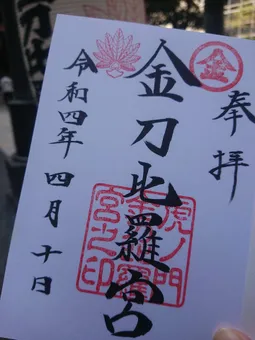 奉拝
金
金刀比羅宮
虎ノ門
金刀比羅
宮之印
令和四年四月十日